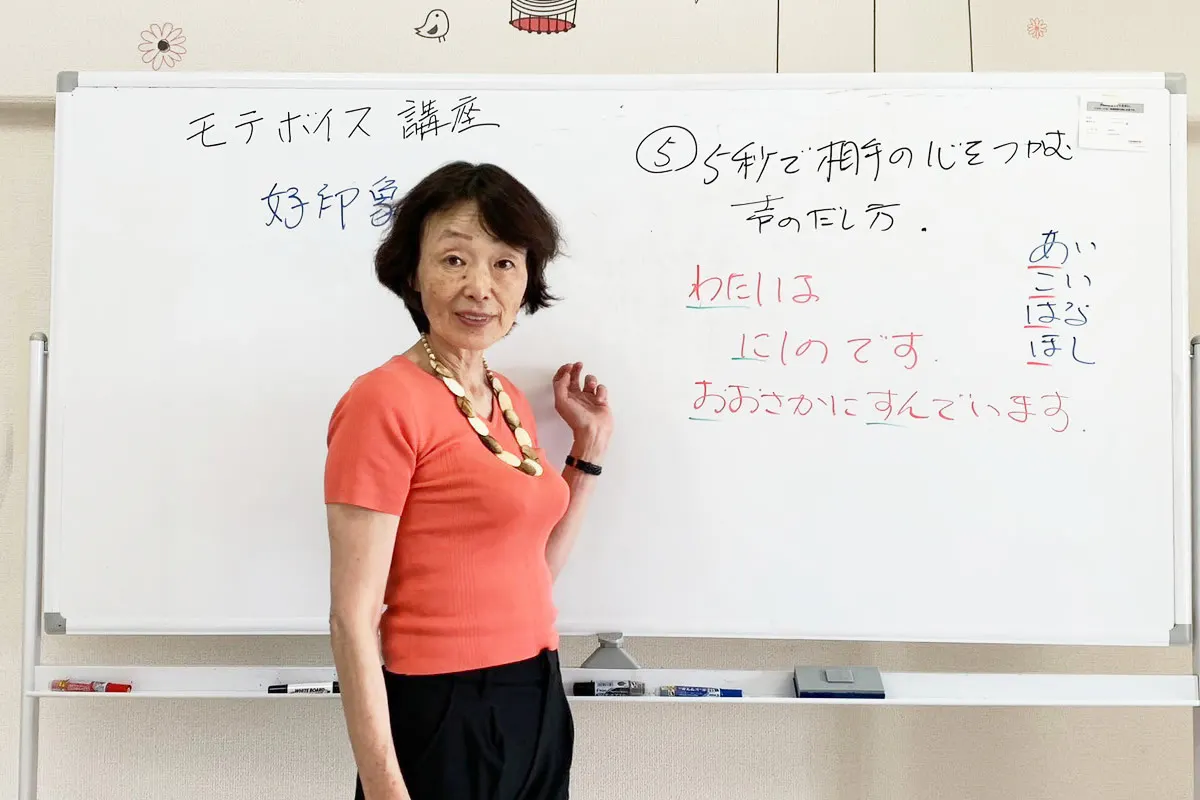 モテボイス 講座
好印象
⑤ 5秒で相手の心をつかむ
声のだし方.
わたしは
にしのです.
おおさかにすんでいます.
あい
こい
はる
ほし
WHITE BOARD